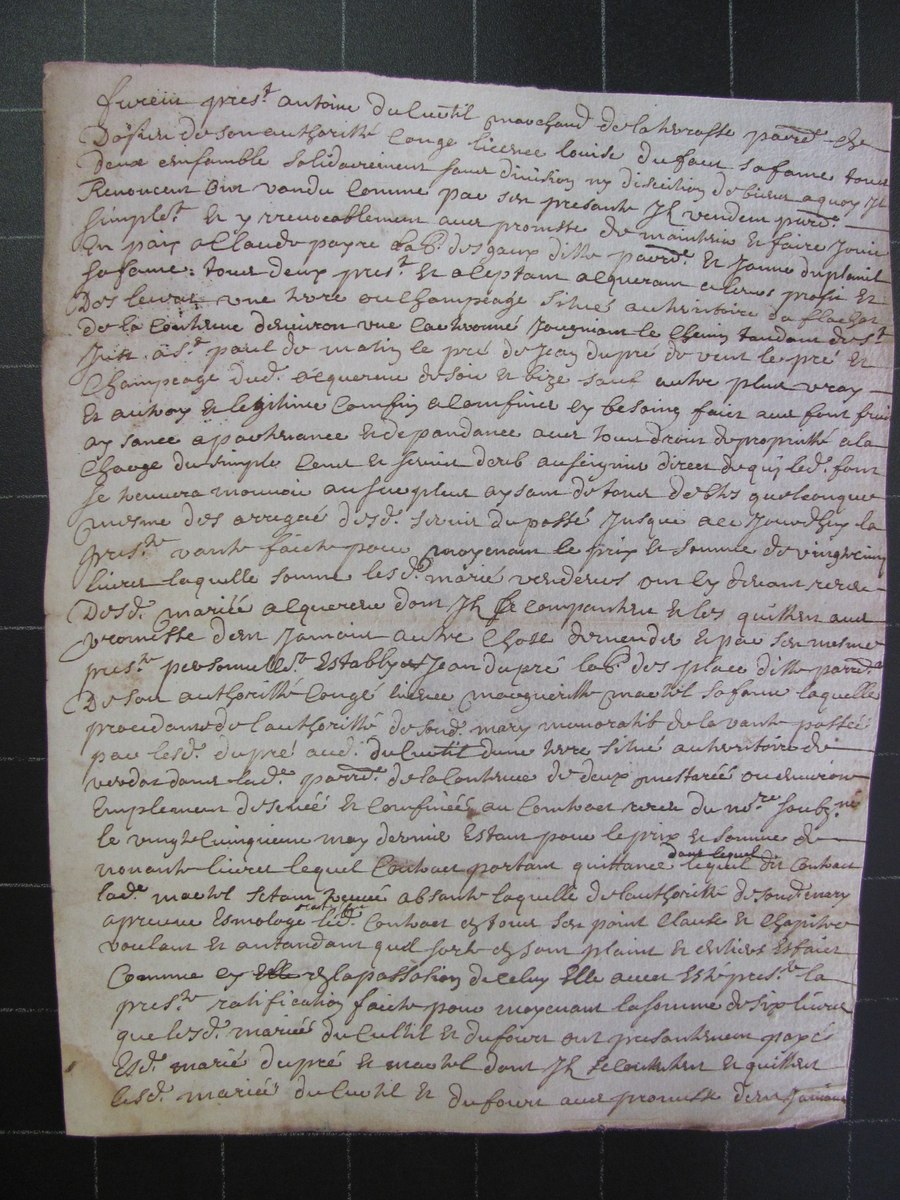 furent prest. antoine du Cultil marchand de la terrasse parre. et
de son authorité Congé licence louise du four sa fame tous
deux ensamble solidairement sans division ny discution de biens a quoy Ilz
Renoncent Ont vandu Comme par ses presante Ilz vendent puremt.
simplet. Et yrrevocablement avec promesse de maintenir et faire Jouir
En paix a Claude payre lab. des gaux ditte parre. Et Janne duplanil
sa fame tous deux prest. Et aceptant acquerant a leurs profit Et
une terre ou Champeage situé au territoire du
de la Contenue denviron une Jougnant le Chemin tandant de st.
Just a st. paul de matin le pré de Jean dupré de vent le pré et
Champeage dud. acquereur de soir et bize sauf autre plus vray
Et autres Et legitime Confin a Confiner sy besoing fait avec font fruit
aysance apartenance Et dependance avec tous droit de propriette a la
Charge du simple Cens Et servis derub au seigneur direct de qui led. font
se trouvera mouvoir au surplus aysant de tous debtes quelconque
mesme des arrerage desd. servis du passé Jusque a ce Jourdhuy la
prese. vante faicte pour moyenant le prix Et somme de vingt cinq
livres laquelle somme lesd. marié vendeurs ont cy devant receu
Desd. mariée acquereur dont Ilz se Contantent Et les quittent avec
promesse den Jamais autre Chose demender et par ses mesme
prese. personnellet. Estably Jean dupré lab. des place ditte parre.
De son authorité Congé licence margueritte machel sa fame laquelle
procedante de lauthoritté de sond. mary memoratif de la vante passée
par lesd. dupré aud. du Cultil dune terre situé au territoire de
verdor dans lad. parre. de la Contenue de deux mestarée ou environ
Emplement designée Et Confinées au Contract receu du nore. soubzné
le vingt Cinquieme may dernier Estant pour le prix Et somme de
nonante livres lequel Contract portant quittance dans lequel dit Contract
lad. machel sestant trouvée absante laquelle de lauthoritté de sond. mary
apreuve Esmologe ratifie led. Contract en tous ses point Clause Et Chapitre
voulant Et antandant quil sorte en son plaint Et entiers Effait
Comme sy Elle en la passation de Celuy Elle avoit Esté prese. la
prese. ratification faicte pour moyenant la somme de six livres
que lesd. mariée du Cultil Et du four ont presantement payés
Esd. marié dupré Et machel dont Ilz se Contentent Et quittent
lesd. mariée du Cultil Et du four avec promesse den Jamais